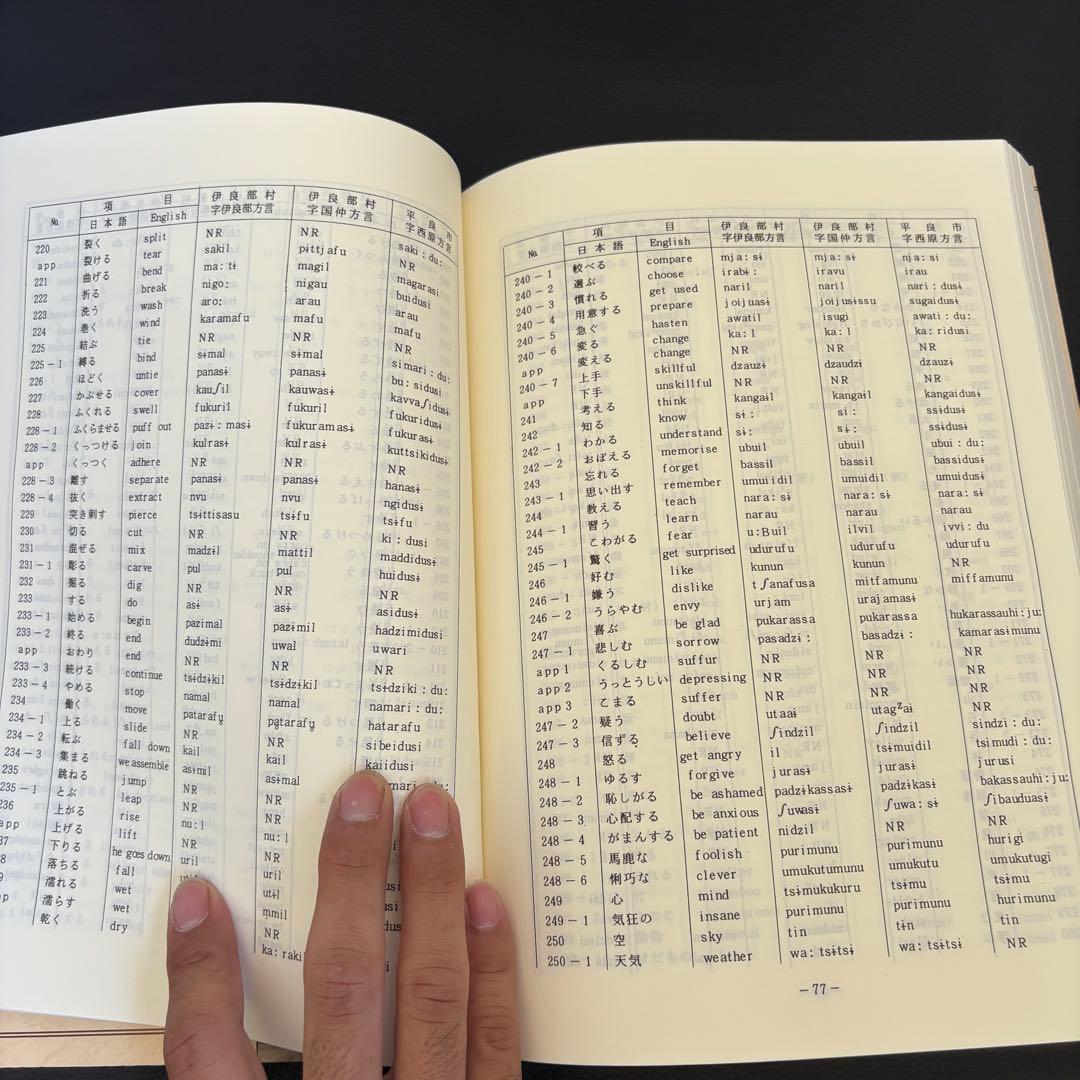 № 項目 日本語 English 伊良部村字伊良部方言 伊良部村字国仲方言 平良市字西原方言
220 裂く split NR NR saki : du:
app 裂ける tear sakil pɨttjafu NR
221 曲げる bend ma: tɨ magil magarasi
222 折る break nigo: nigau buidusi
223 洗う wash aro: arau arau
224 巻く wind karamafu mafu mafu
225 結ぶ tie NR NR NR
225 − 1 縛る bind sɨmal sɨmal simari : du:
226 ほどく untie panasɨ panasɨ bu: sidusi
227 かぶせる cover kauʃil kauwasɨ kavvaʃidusɨ
228 ふくれる swell fukuril fukuril fukuridusɨ
228 − 1 ふくらませる puff out pazɨ : masɨ fukuramasɨ fukurasɨ
228 − 2 くっつける join kulrasɨ kulrasɨ kuttsikidusɨ
app くっつく adhere NR NR NR
228 − 3 離す separate panasɨ panasɨ hanasɨ
228 − 4 抜く extract nvu nvu ngidusɨ
229 突き刺す pierce tsɨttisasu tsɨfu tsɨfu
230 切る cut NR NR ki : dusi
231 混ぜる mix madzɨl mattil maddidusɨ
231 − 1 彫る carve pul pul huidusɨ
232 掘る dig NR NR NR
233 する do asɨ asɨ asidusɨ
233 − 1 始める begin pazimal pazɨmil hadzimidusi
233 − 2 終る end dudzɨmi uwal uwari
app おわり end NR NR NR
233 − 3 続ける continue tsɨdzɨkil tsɨdzɨkil tsɨdziki : du:
233 − 4 やめる stop namal namal namari : du:
234 働く move patarafu̥ pątarafu̥ hatarafu
234 − 1 上る slide NR NR sibeidusi
234 − 2 転ぶ fall down kail kail kaiidusi
234 − 3 集まる we assemble asɨmil asɨmal
235 跳ねる jump NR NR
235 − 1 とぶ leap NR NR
236 上がる rise nu: l nu: l
app 上げる lift NR NR
37 下りる he goes down uril uril
38 落ちる fall utɨl
濡れる wet mmil
濡らす wet NR
乾く dry ka: rakil
№ 項目 日本語 English 伊良部村字伊良部方言 伊良部村字国仲方言 平良市字西原方言
240 − 1 較べる compare mja: sɨ mja: sɨ nja: si
240 − 2 選ぶ choose irabɨ : iravu irau
240 − 3 慣れる get used naril naril nari : dusɨ
240 − 4 用意する prepare joijuasɨ joijusɨssu sugaidusɨ
240 − 5 急ぐ hasten awatil isugi awati : du:
240 − 6 変る change ka: l ka: l ka: ridusi
app 変える change NR NR NR
240 − 7 上手 skillful dzauzɨ dzaudzɨ dzauzɨ
app 下手 unskillful NR NR NR
241 考える think kangail kangail kangaidusɨ
242 知る know sɨ : si : ssɨdusɨ
242 − 1 わかる understand sɨ: si: ssɨdusɨ
242 − 2 おぼえる memorise ubuil ubuil ubui : du:
243 忘れる forget bassil bassil bassidusɨ
243 − 1 思い出す remember umuidil umuidil umuidusɨ
244 教える teach nara: sɨ nara: sɨ nara: sɨ
244 − 1 習う learn narau narau narau
245 こわがる fear u:Buil ilvil ivvi : du
245 − 1 驚く get surprised udurufu udurufu udurufu
246 好む like kunun kunun NR
246 − 1 嫌う dislike tʃanafusa mitfamunu miffamunu
246 − 2 うらやむ envy urjam urajamasɨ
247 喜ぶ be glad pukarassa pukarassa hukarassauhi : ju:
247 − 1 悲しむ sorrow pasadzɨ : basadzɨ : kamarasimunu
app 1 くるしむ suffur NR NR NR
app 2 うっとうしい depressing NR NR NR
app 3 こまる suffer NR NR NR
247 − 2 疑う doubt utaaɨ utagᶻai NR
247 − 3 信ずる believe ʃindzil ʃindzil sindzi : du:
248 怒る get angry il tsɨmuidil tsimudi : du:
248 − 1 ゆるす forgive jurasɨ jurasɨ jurusi
248 − 2 恥しがる be ashamed padzɨkassasɨ padzɨkasɨ bakassauhi : ju:
248 − 3 心配する be anxious ʃuwasɨ ʃuwa: sɨ ʃibauduasɨ
248 − 4 がまんする be patient nidzil NR NR
248 − 5 馬鹿な foolish purimunu purimunu hurigi
248 − 6 悧巧な clever umukutumunu umukutu umukutugi
249 心 mind tsɨmukukuru tsɨmu tsɨmu
249 − 1 気狂の insane purimunu purimunu hurimunu
250 空 sky tin tɨn tin
250 − 1 天気 weather wa: tsɨtsɨ wa: tsɨtsɨ NR
－77－